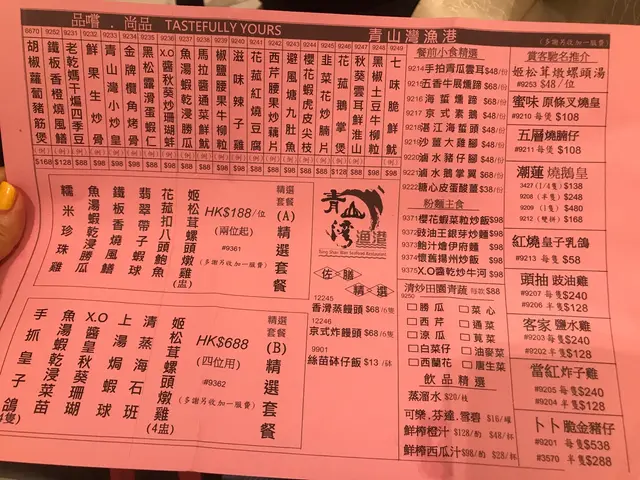 品嚐‥尚品 TASTEFULLY YOURS
青山灣漁港
(多謝另收加一服務費)
6670 胡椒蘿蔔豬筋煲 (例) $168
9252 鐵板香橙燒風鱔 (例) $128
9231 老乾媽干煸四季豆 (例) $88
9232 鮮果生炒骨 (例) $88
9233 青山灣小炒皇 (例)
9234 金牌欖角烤骨 (例)
9235 黑松露滑蛋蝦仁 (例)
9236 X.O醬秋葵炒珊瑚蚌 (例)
9237 魚湯蝦乾浸勝瓜 (例)
9238 馬拉醬通菜鮮魷 (例)
9239 椒鹽腰果牛柳粒 (例)
9240 滋味辣子雞 (例)
9241 花菰紅燒豆腐 (例)
9242 西芹腰果炒藕片 (例)
9243 避風塘九肚魚 (例)
9244 櫻花蝦虎皮尖枝 (例)
9245 韭菜花炒腩片 (例)
9246 花菰鵝掌煲 (例)
9247 秋葵雲耳鮮淮山 (例)
9248 黑椒土豆牛柳粒 (例)
9249 七味脆鮮魷 (例)
餐前小食精選
9214 手拍青瓜雲耳 $48/份
9215 五香牛展燻蹄 $68/份
9216 海蜇燻蹄 $68/份
9217 京式素鵝 $48/份
9218 湛江海蜇頭 $48/份
9219 沙薑大雞腳 $48/份
9220 鹵水豬仔腳 $48/份
9221 鹵水鵝掌翼 $68/份
9222 糖心皮蛋酸薑 $38/份
粉麵主食
9371 櫻花蝦菜粒炒飯 $98
9372 豉油王銀芽炒麵 $98
9373 鮑汁炆伊府麵 $98
9374 懷舊揚州炒飯 $98
9375 X.O醬乾炒牛河 $98
清炒田園青蔬 每款 $88
9250
□勝瓜 □菜心
□西芹 □通菜
□涼瓜 □莧菜
□白菜仔 □油麥菜
□西蘭花 □唐生菜
飲品精選
蒸溜水 $20/枝
可樂.芬達.雪碧 $16/罐
鮮榨橙汁 $128/酌 $48/杯
鮮榨西瓜汁 $98/酌 $28/杯
賞客馳名推介
姬松茸燉螺頭湯
#9253 $48/位
蜜味 原條叉燒皇
#9210 每煲 $108
五層燒腩仔
#9211 每煲 $108
潮蓮 燒鵝皇
3427 (1/4隻) $138
#9208 (半隻) $248
#9209 (1隻) $480
#9212 (雙拼) $168
紅燒 皇子乳鴿
#9213 每隻 $58
頭抽 豉油雞
#9207 每隻 $240
#9206 半隻 $128
客家 鹽水雞
#9203 每隻 $240
#9202 半隻 $128
當紅 炸子雞
#9205 每隻 $240
#9204 半隻 $128
卜卜 脆金豬仔
#9201 每隻 $538
#3570 半隻 $288
精選套餐 (A) 精選套餐
HK$188/位
(兩位起)
#9361
(多謝另收加一服務費)
姬松茸螺頭燉雞(盅)
花菰扣八頭鮑魚
翡翠帶子蝦球
鐵板香燒風鱔
魚湯蝦乾浸勝瓜
糯米珍珠雞
精選套餐 (B) 精選套餐
HK$688
(四位用)
#9362
(多謝另收加一服務費)
姬松茸螺頭燉雞(4盅)
清蒸海石班
上湯焗蝦球
X.O醬皇秋葵珊瑚
魚湯蝦乾浸菜苗
手抓皇子鴿
青山灣漁港
佐膳精選
12245
香滑蒸饅頭 $68/6隻
12246
京式炸饅頭 $68/6隻
9901
絲苗砵仔飯 $13/砵